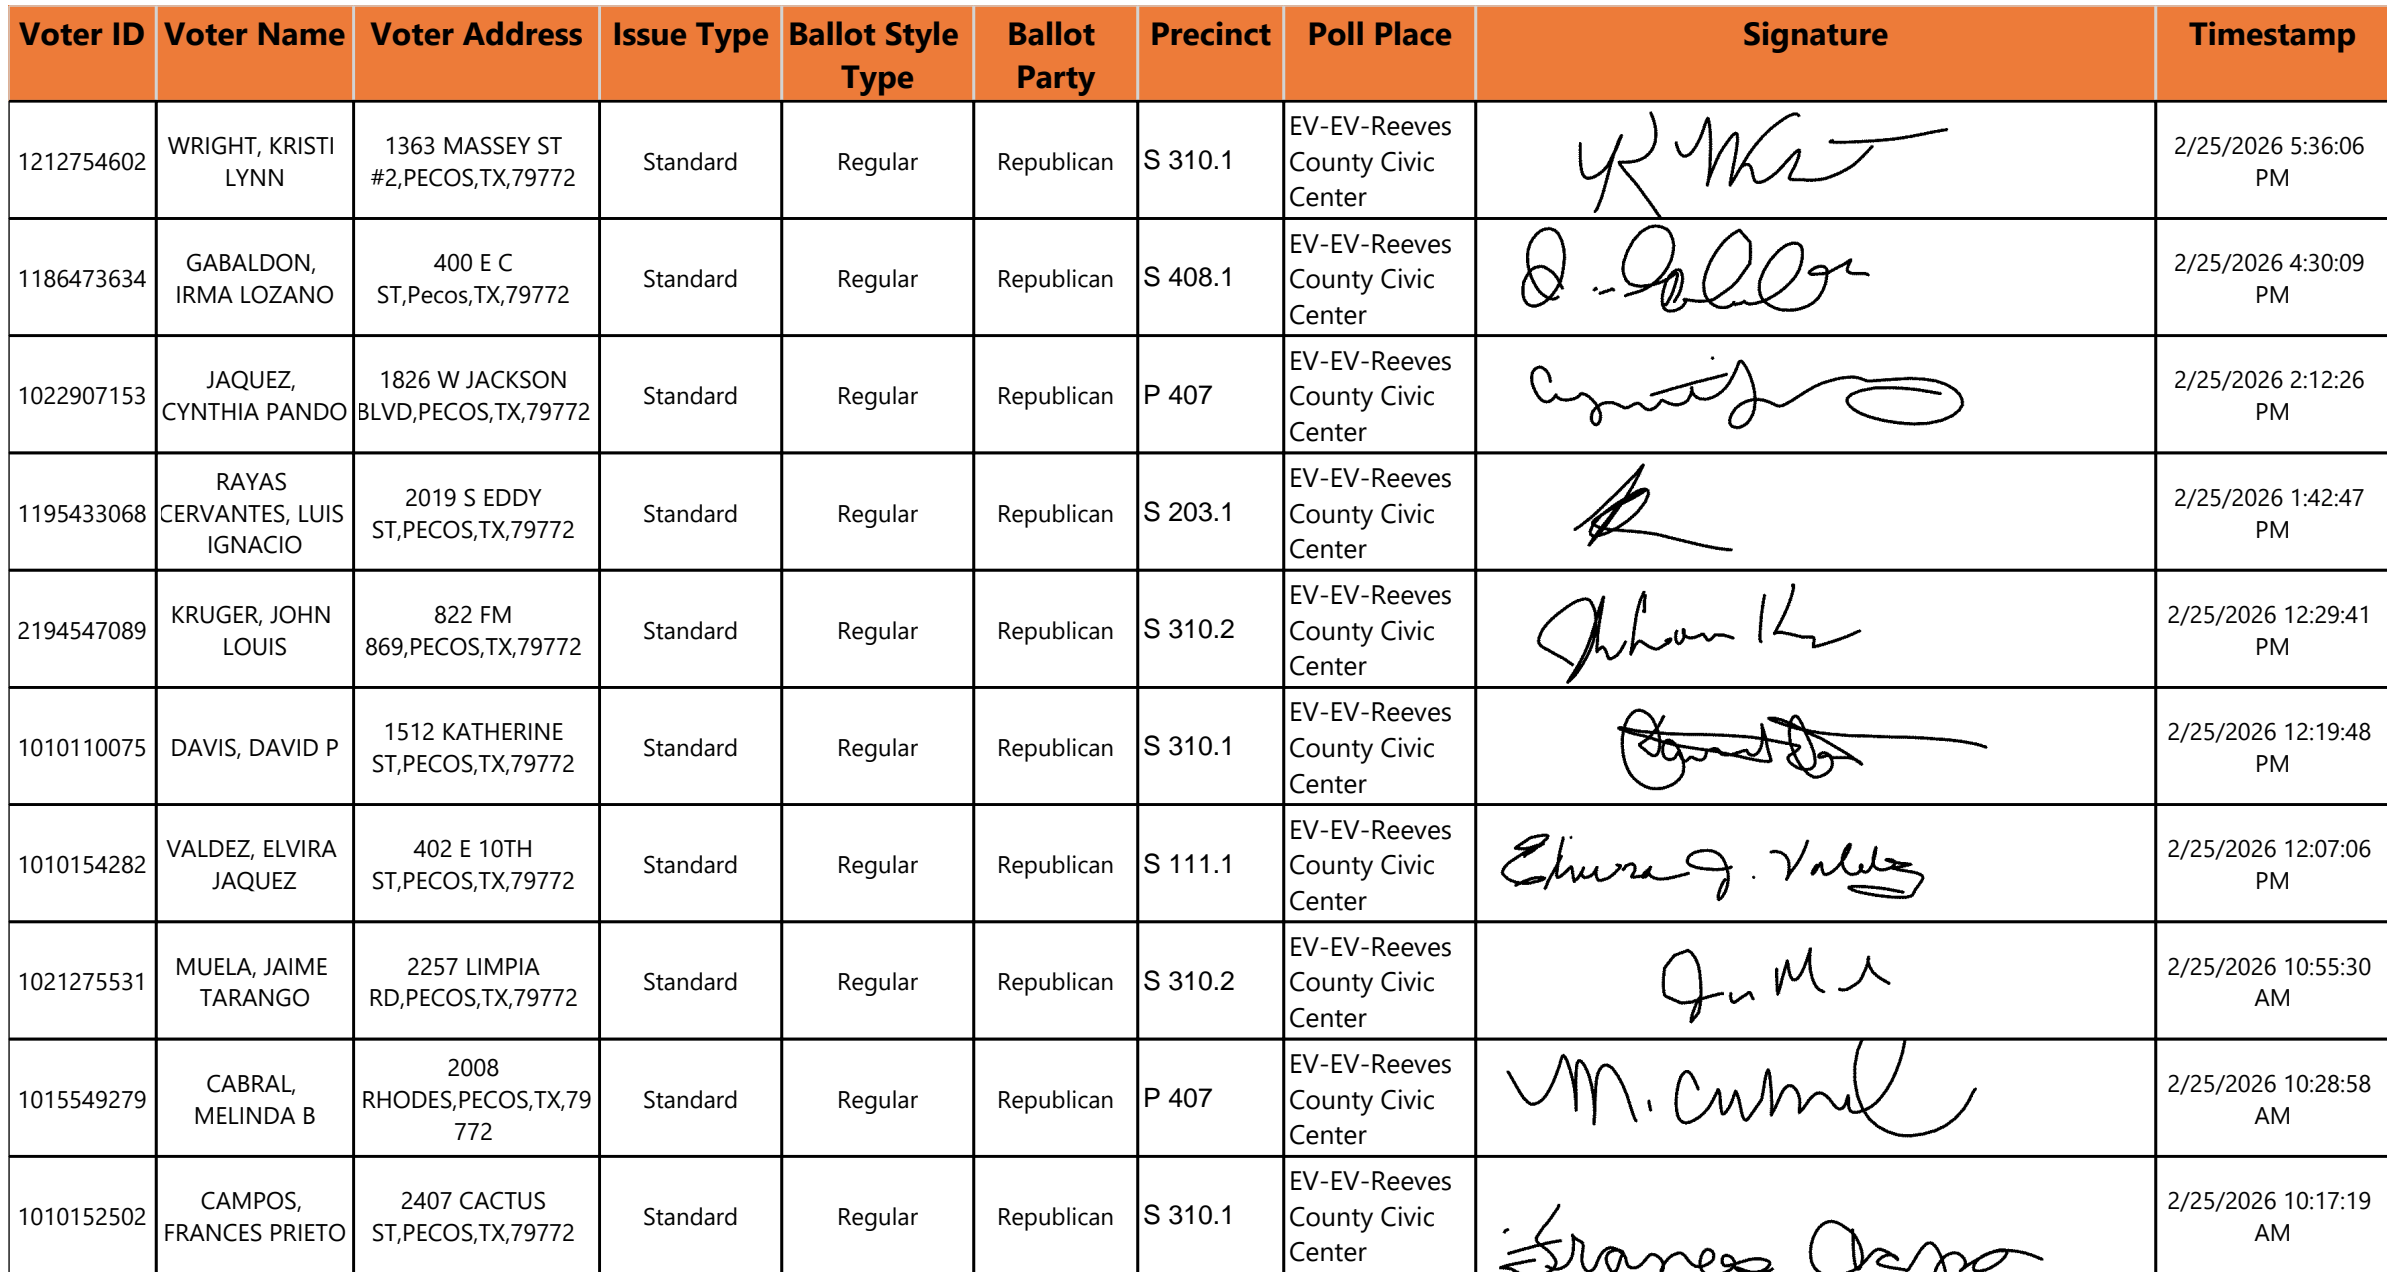 Voter ID Voter Name Voter Address Issue Type Ballot Style Type Ballot Party Precinct Poll Place Signature Timestamp
1212754602 WRIGHT, KRISTI LYNN 1363 MASSEY ST #2,PECOS,TX,79772 Standard Regular Republican S 310.1 EV-EV-Reeves County Civic Center 2/25/2026 5:36:06 PM
1186473634 GABALDON, IRMA LOZANO 400 E C ST,Pecos,TX,79772 Standard Regular Republican S 408.1 EV-EV-Reeves County Civic Center 2/25/2026 4:30:09 PM
1022907153 JAQUEZ, CYNTHIA PANDO 1826 W JACKSON BLVD,PECOS,TX,79772 Standard Regular Republican P 407 EV-EV-Reeves County Civic Center 2/25/2026 2:12:26 PM
1195433068 RAYAS CERVANTES, LUIS IGNACIO 2019 S EDDY ST,PECOS,TX,79772 Standard Regular Republican S 203.1 EV-EV-Reeves County Civic Center 2/25/2026 1:42:47 PM
2194547089 KRUGER, JOHN LOUIS 822 FM 869,PECOS,TX,79772 Standard Regular Republican S 310.2 EV-EV-Reeves County Civic Center 2/25/2026 12:29:41 PM
1010110075 DAVIS, DAVID P 1512 KATHERINE ST,PECOS,TX,79772 Standard Regular Republican S 310.1 EV-EV-Reeves County Civic Center 2/25/2026 12:19:48 PM
1010154282 VALDEZ, ELVIRA JAQUEZ 402 E 10TH ST,PECOS,TX,79772 Standard Regular Republican S 111.1 EV-EV-Reeves County Civic Center Elvira J. Valdez 2/25/2026 12:07:06 PM
1021275531 MUELA, JAIME TARANGO 2257 LIMPIA RD,PECOS,TX,79772 Standard Regular Republican S 310.2 EV-EV-Reeves County Civic Center 2/25/2026 10:55:30 AM
1015549279 CABRAL, MELINDA B 2008 RHODES,PECOS,TX,79772 Standard Regular Republican P 407 EV-EV-Reeves County Civic Center M. Cabral 2/25/2026 10:28:58 AM
1010152502 CAMPOS, FRANCES PRIETO 2407 CACTUS ST,PECOS,TX,79772 Standard Regular Republican S 310.1 EV-EV-Reeves County Civic Center 2/25/2026 10:17:19 AM